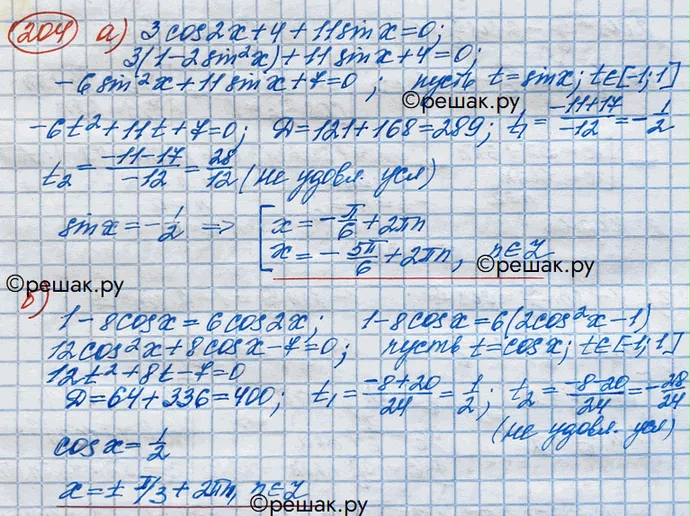 204 а) 3 cos2x + 4 + 11 sin x = 0;
3(1 - 2 sin²x) + 11 sin x + 4 = 0;
-6 sin²x + 11 sin x + 7 = 0; пусть t = sin x; t ∈ [-1; 1]
©решак.ру
-6t² + 11t + 7 = 0; D = 121 + 168 = 289; t₁ = (-11+17)/(-12) = -1/2
t₂ = (-11-17)/(-12) = 28/12 (не удовл. усл)
sin x = -1/2 => [ x = -π/6 + 2πn
x = -5π/6 + 2πn, n ∈ Z
©решак.ру ©решак.ру
б)
1 - 8 cos x = 6 cos 2x; 1 - 8 cos x = 6(2cos²x - 1)
12 cos²x + 8 cos x - 7 = 0; пусть t = cos x; t ∈ [-1; 1]
12t² + 8t - 7 = 0
D = 64 + 336 = 400; t₁ = (-8+20)/24 = 1/2; t₂ = (-8-20)/24 = -28/24
(не удовл. усл)
cos x = 1/2
x = ± π/3 + 2πn, n ∈ Z
©решак.ру